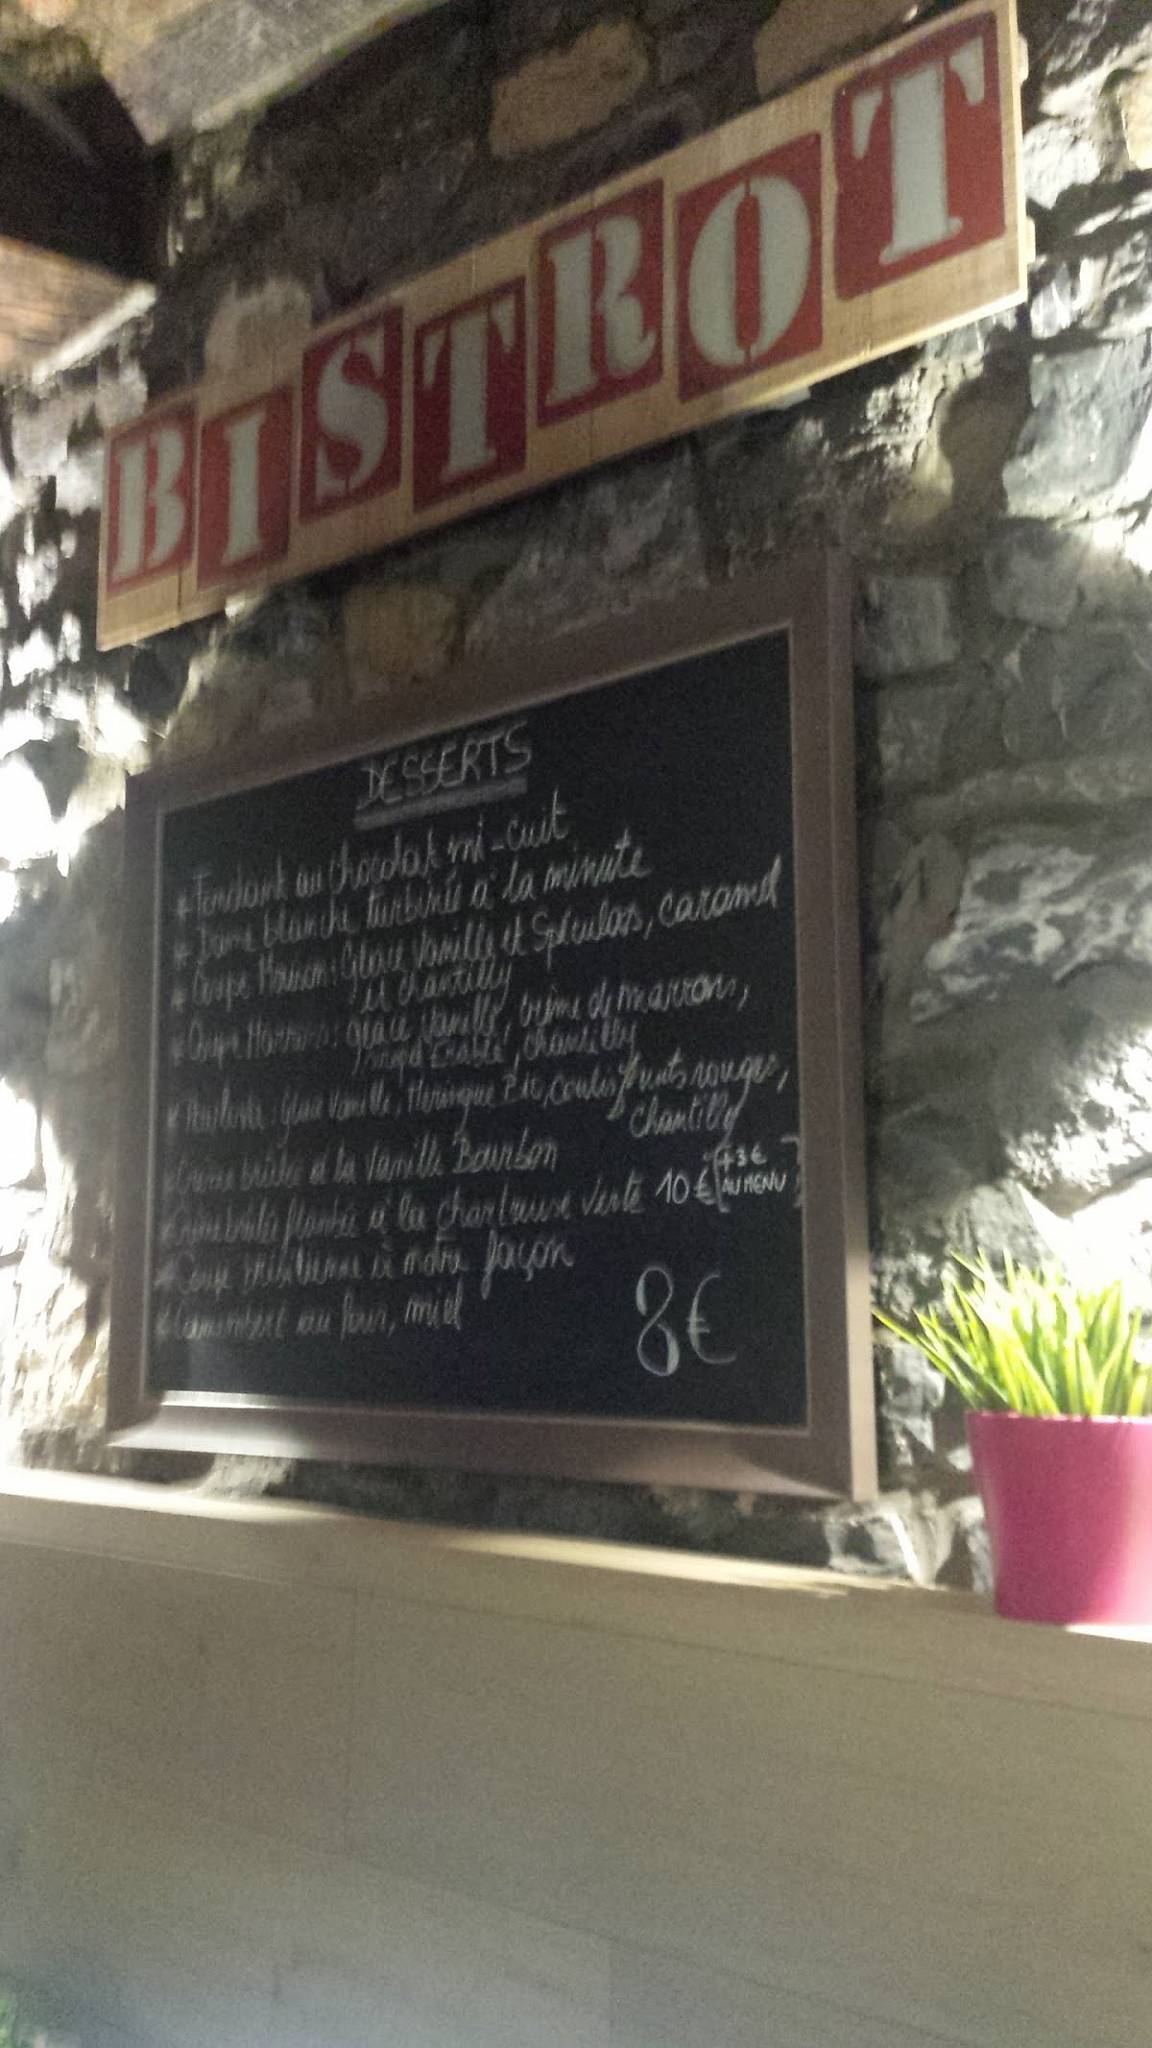 BISTROT
DESSERTS
* Fondant au chocolat mi-cuit
* Dame blanche turbinée à la minute
* Coupe Maison: Glace Vanille et Spéculos, caramel
et chantilly
* Coupe Marrons: glace vanille, crème de marrons,
sirop d'Erable, chantilly
* glace Vanille, Meringue Bio, coulis fruits rouges,
chantilly
* Crème brûlée à la Vanille Bourbon
* Crème brûlée flambée à la Chartreuse Verte 10€ (+3€
AU MENU)
* à notre façon
* Camembert au four, miel
8€